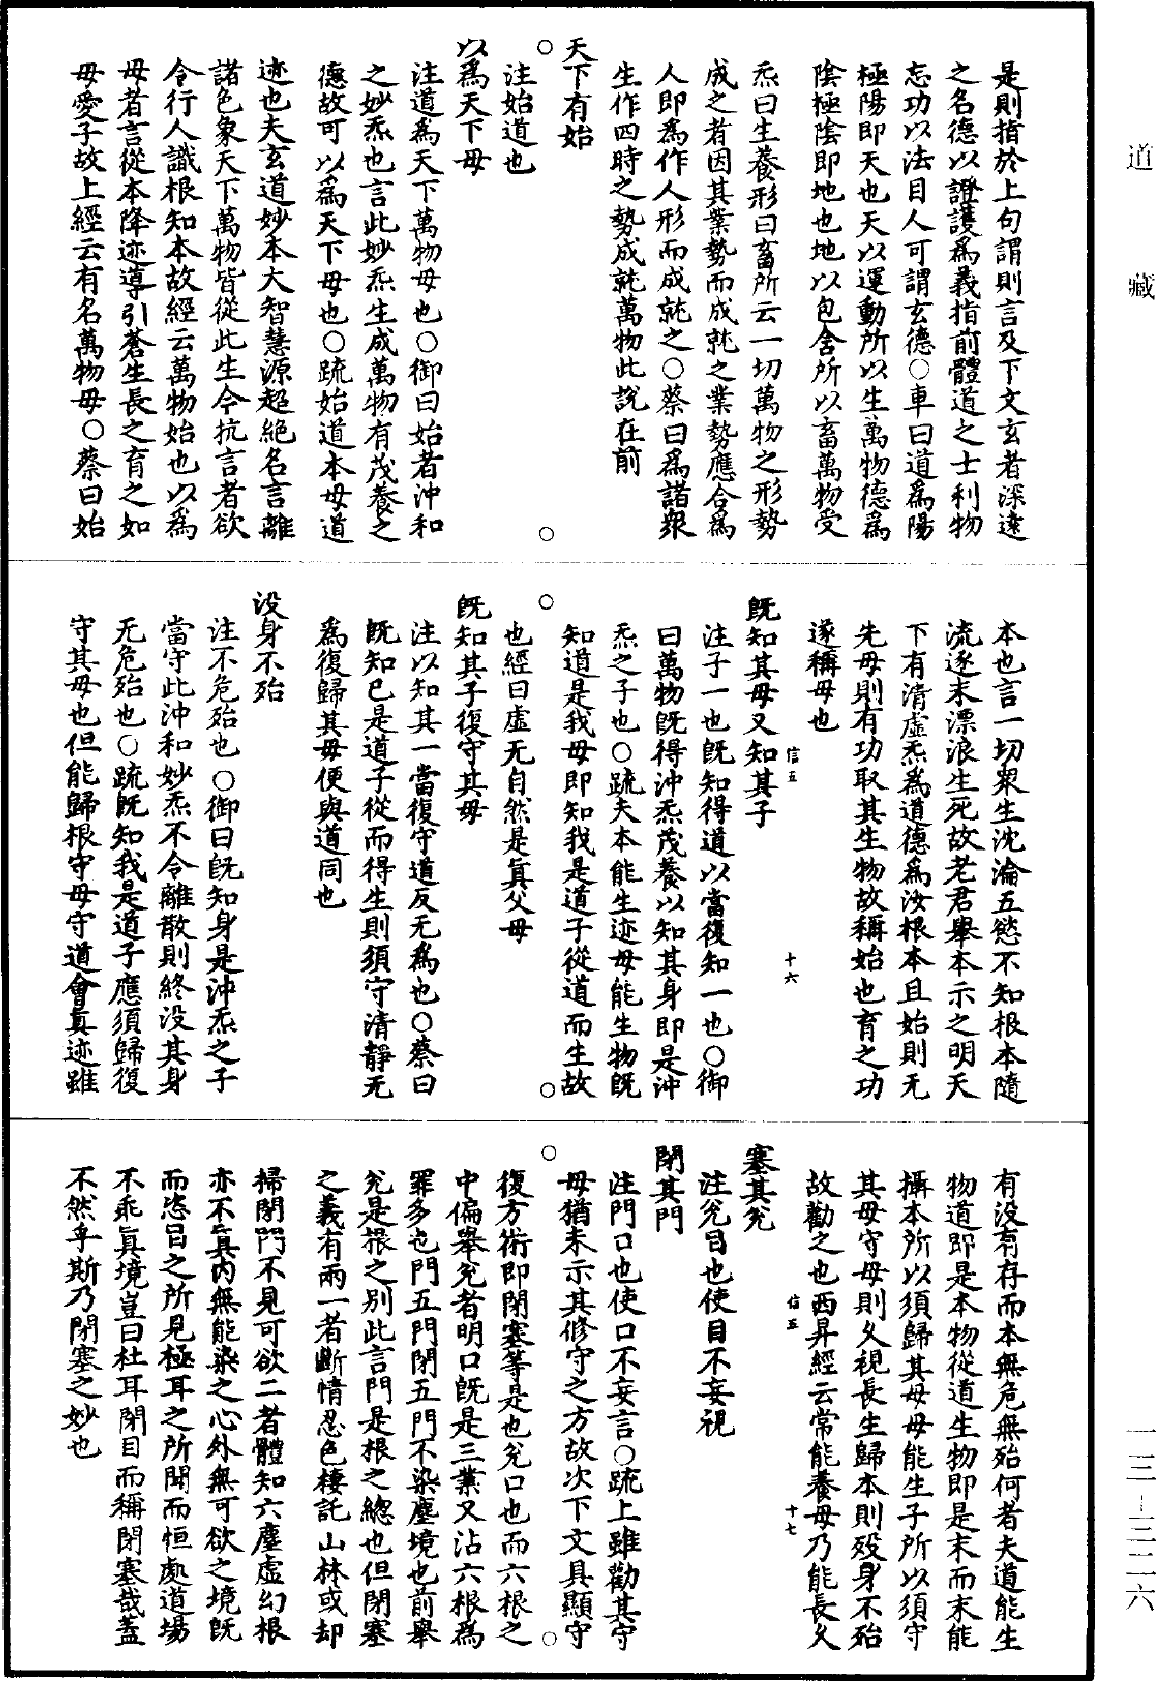 道藏
是則指於上句謂則言及下文玄者深遠
之名德以證護為義指前體道之士利物
忘功以法目人可謂玄德○車曰道為陽
極陽即天也天以運動所以生萬物德為
陰極陰即地也地以包含所以畜萬物受
炁曰生養形曰畜所云一切萬物之形勢
成之者因其業勢而成就之業勢應合為
人即為作人形而成就之○蔡曰為諸衆
生作四時之勢成就萬物此說在前
天下有始
○注始道也○
以為天下母
注道為天下萬物母也○御曰始者沖和
之妙炁也言此妙炁生成萬物有茂養之
德故可以為天下母也○疏始道本母道
迹也夫玄道妙本大智慧源超絕名言離
諸色象天下萬物皆從此生今抗言者欲
令行人識根知本故經云萬物始也以為
母者言從本降迹導引蒼生長之育之如
母愛子故上經云有名萬物母○蔡曰始
本也言一切衆生沈淪五慾不知根本隨
流逐末漂浪生死故老君舉本示之明天
下有清虛炁為道德為汝根本且始則无
先母則有功取其生物故稱始也育之功
遂稱母也
信五　十六
既知其母又知其子
注子一也既知得道以當復知一也○御
曰萬物既得沖炁茂養以知其身即是沖
炁之子也○疏夫本能生迹母能生物既
知道是我母即知我是道子從道而生故
○也經曰虛无自然是真父母○
既知其子復守其母
注以知其一當復守道反无為也○蔡曰
既知已是道子從而得生則須守清靜无
為復歸其母便與道同也
没身不殆
注不危殆也○御曰既知身是沖炁之子
當守此沖和妙炁不令離散則終没其身
无危殆也○疏既知我是道子應須歸復
守其母也但能歸根守母守道會真迹雖
有没有存而本無危無殆何者夫道能生
物道即是本物從道生物即是末而末能
攝本所以須歸其母母能生子所以須守
其母守母則久視長生歸本則歿身不殆
故勸之也西昇經云常能養母乃能長久
信五　十七
塞其兌
注兌目也使目不妄視
閉其門
注門口也使口不妄言○疏上雖勸其守
母猶未示其修守之方故次下文具顯守
○復方術即閉塞等是也兌口也而六根之○
中偏舉兌者明口既是三業又沾六根為
罪多也門五門閉五門不染塵境也前舉
兌是根之别此言門是根之總也但閉塞
之義有兩一者斷情忍色棲託山林或却
掃閉門不見可欲二者體知六塵虛幻根
亦不真内無能染之心外無可欲之境既
而恣目之所見極耳之所聞而恒處道場
不乖真境豈曰杜耳閉目而稱閉塞哉蓋
不然乎斯乃閉塞之妙也
一三–三二六